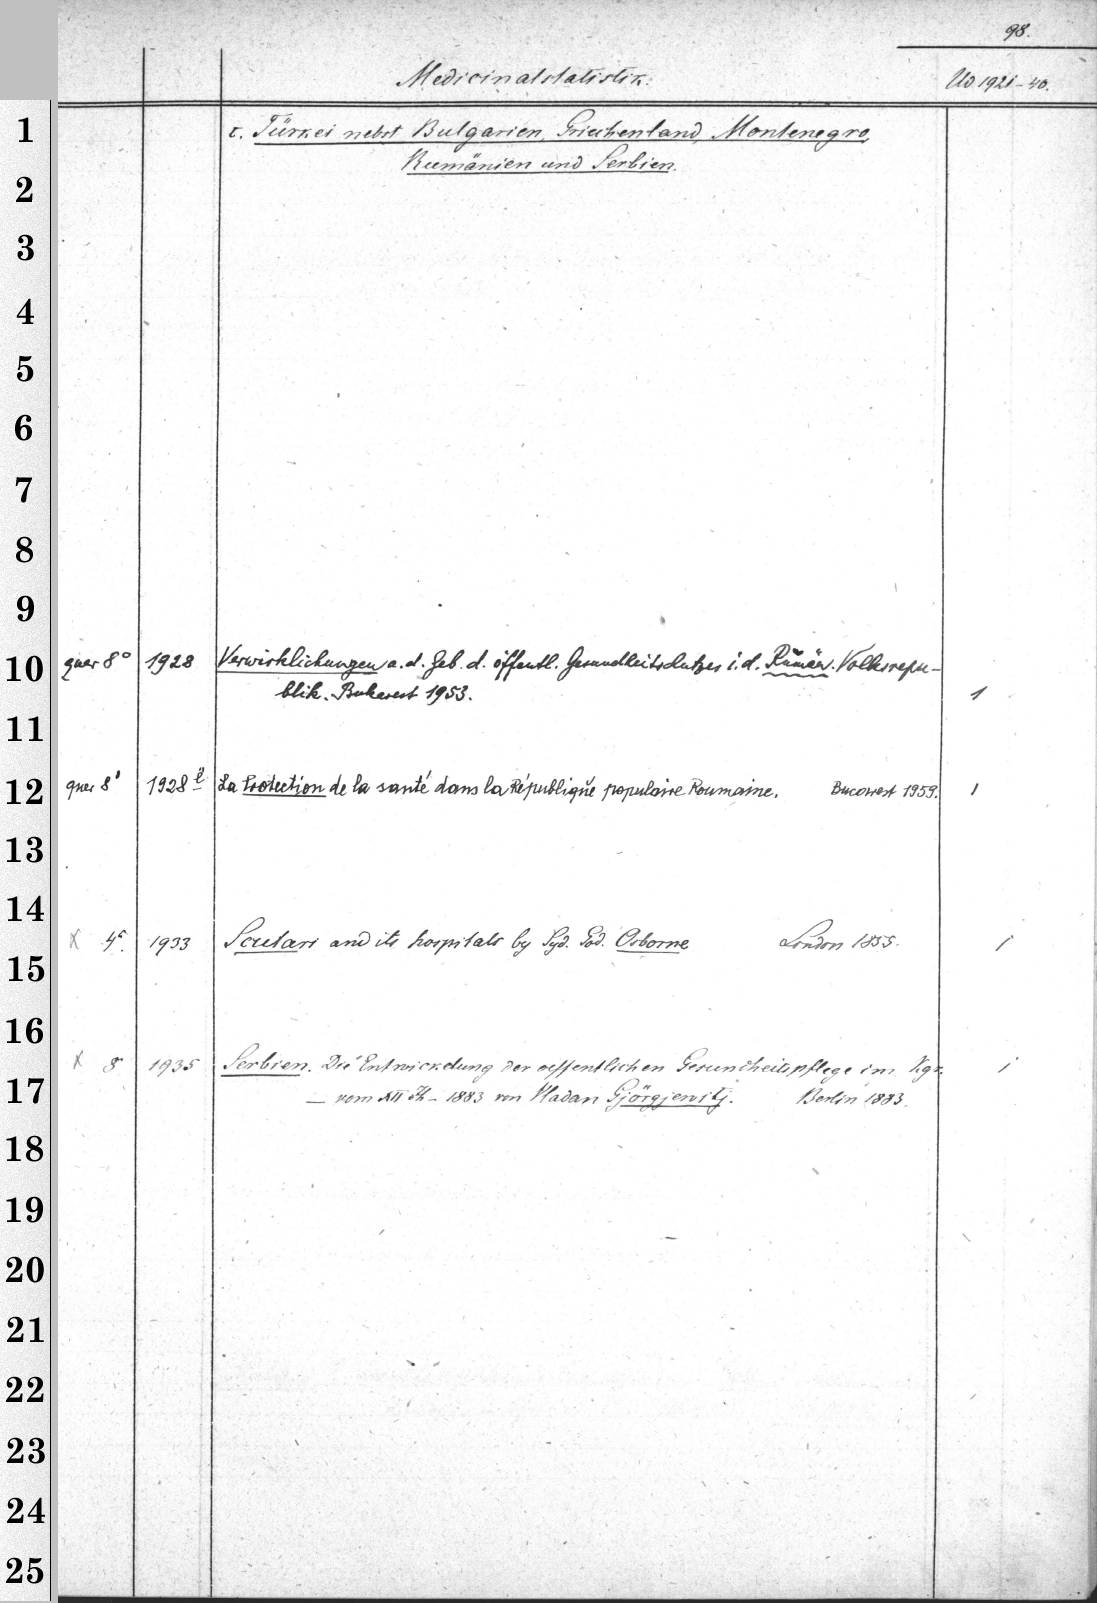 98.
Medicinalstatistik.
Ud 1921-40.
1
c. Türkei nebst Bulgarien, Griechenland, Montenegro,
2
Rumänien und Serbien.
3
4
5
6
7
8
9
10
quer 8° 1928 Verwirklichungen a. d. Geb. d. öffentl. Gesundheitsschutzes i. d. Rumän. Volksrepu-
blik. Bukarest 1953. 1
11
12
quer 8° 1928 La Protection de la santé dans la République populaire Roumaine. Bucarest 1959. 1
13
14
X 4°. 1933 Scutari and its hospitals by Syd. God. Osborne London 1855. 1
15
16
X 8 1935 Serbien. Die Entwickelung der oeffentlichen Gesundheitspflege im Kgr. 1
17
— vom XII Jh - 1883 von Vladan Gjörgjewitj. Berlin 1883.
18
19
20
21
22
23
24
25